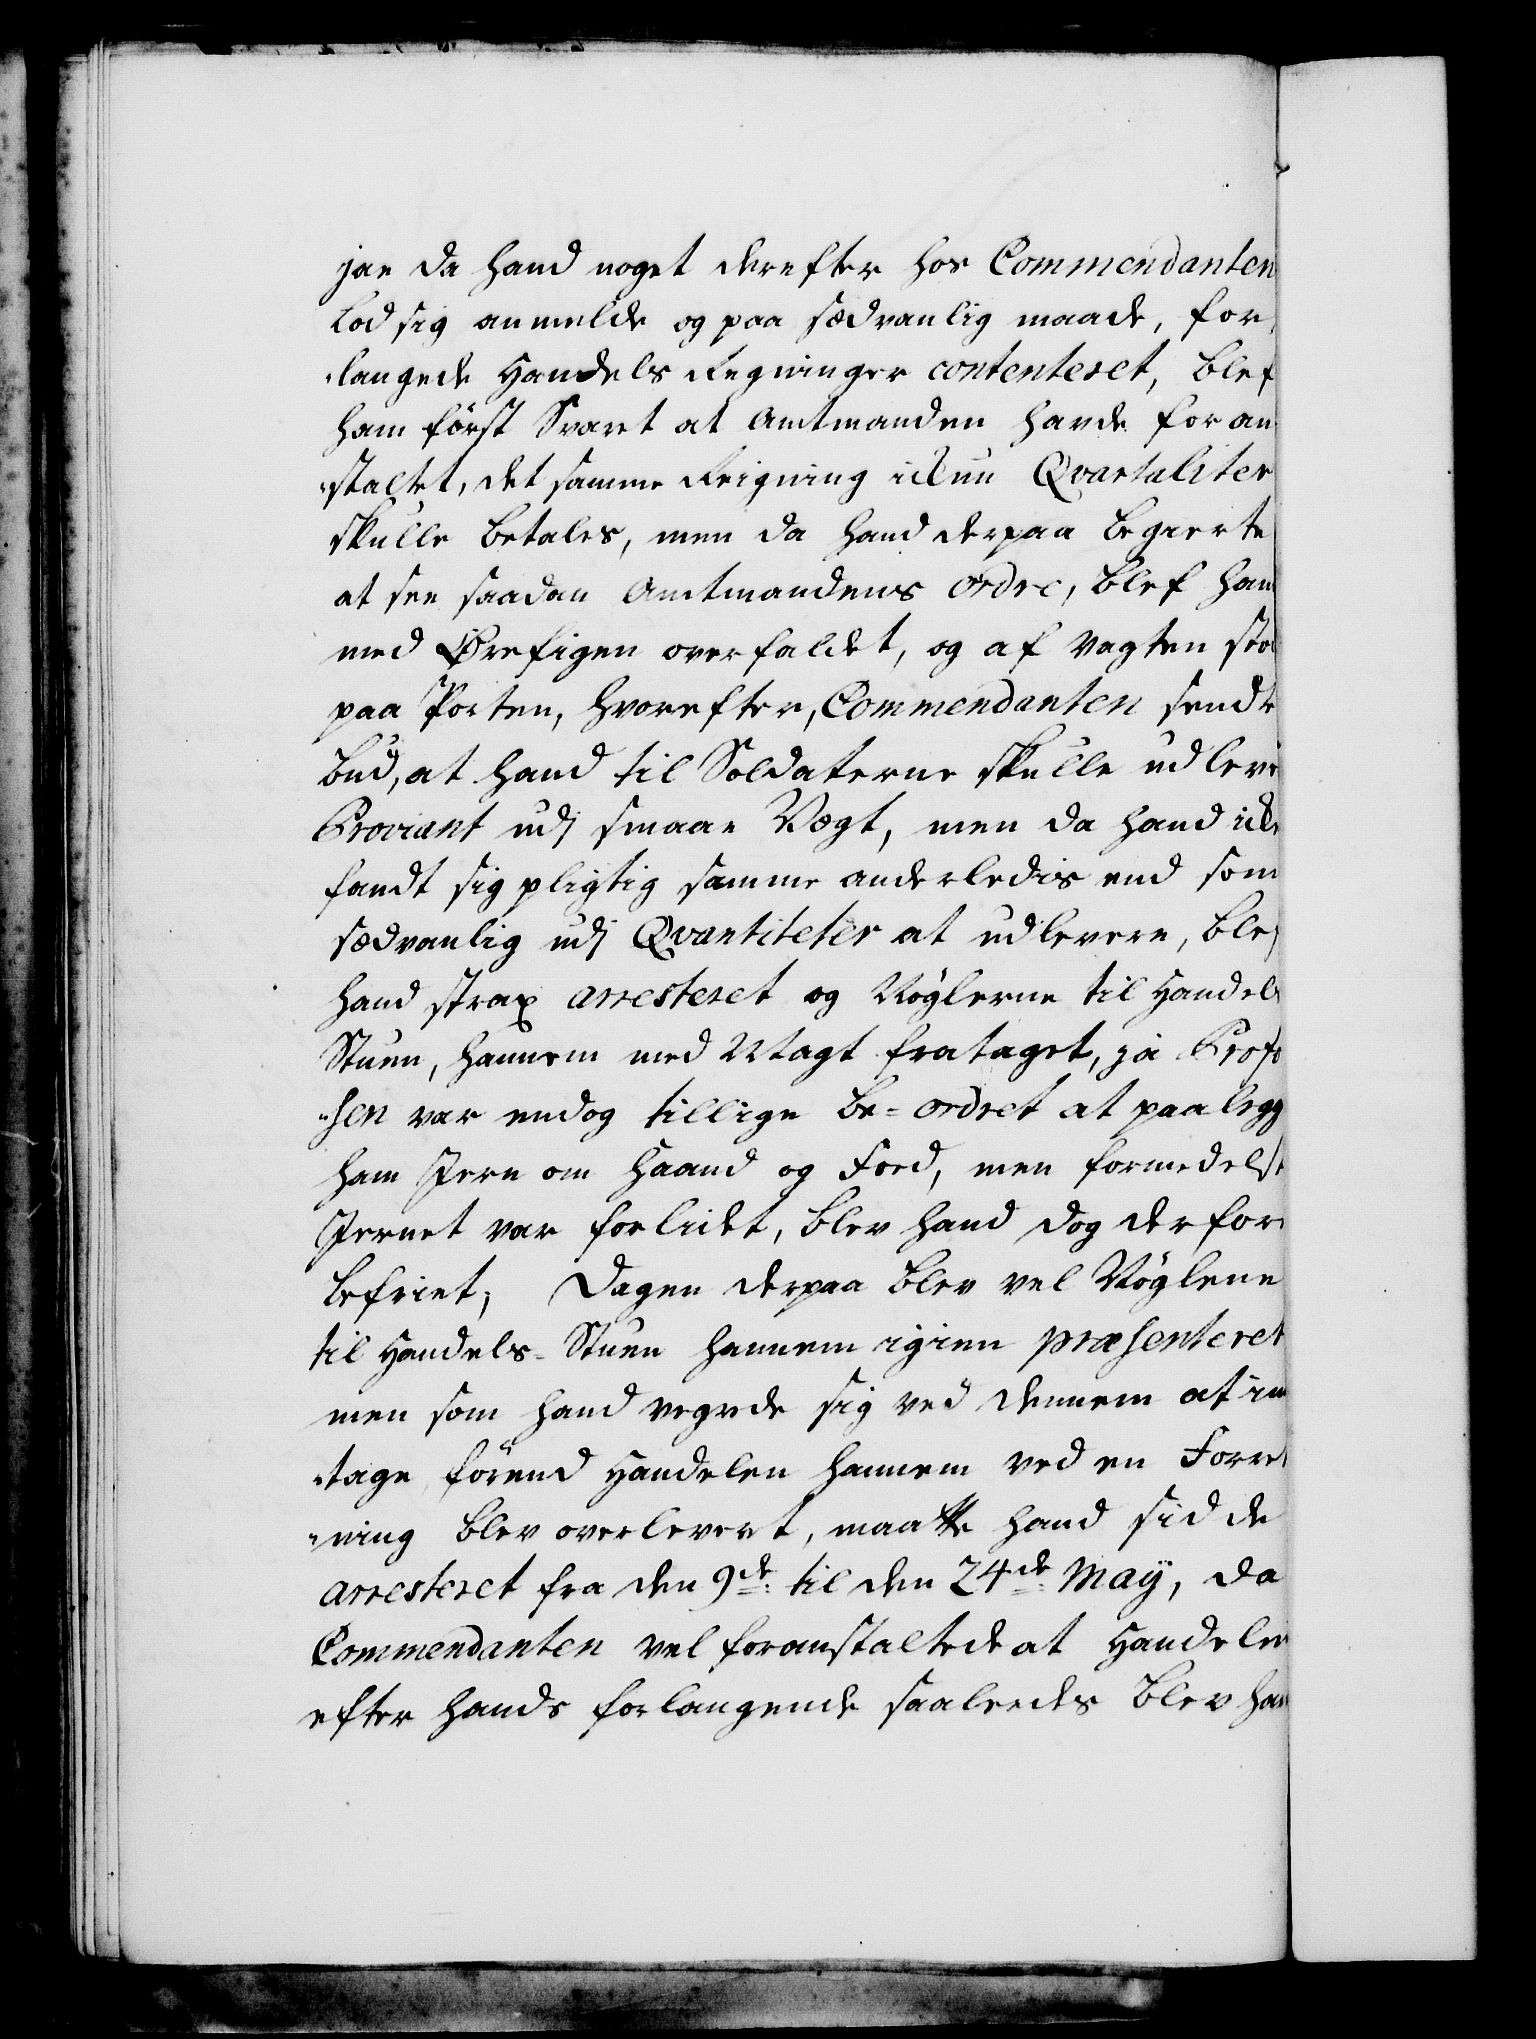 jae da hand noget derefter hos Commendanten
lod sig anmelde og paa sædvanlig maade, for¬
langede Handels Regninger contenteret, blef
ham först Svaret at Amtmanden havde foran
staltet, det samme Reigning ickun Qvartaliter
skulle betales, men da hand derpaa begierte
at see saadan Amtmandens ordre, blef hand
med Örefigen overfaldet, og af Vagten stö
paa Porten, hvorefter, Commendanten sendte
bud, at hand til Soldaterne skulle udleve
Proviant udj smaae Vægt, men da hand icke
fandt sig pligtig samme anderledis end som
sædvanlig udj Qvantiteter at udlevere, blef
hand strax arresteret og Nöglerne til Handels
Stuen, hannem med Magt frataget, ja Profo
sen var endog tillige be-ordret at paalegge
ham Jern om Haand og Foed, men formedelst
Jernet var forlidet, blev hand dog derfor
befriet; Dagen derpaa blev vel Nöglene
til Handels-Stuen hannem igien præsenteret
men som hand vegrede sig ved dennem at im
tage förend Handelen hannem ved en Forret
ning blev overlevert, maatte hand sidde
arresteret fra den 9de: til den 24de: Maÿ, da
Commendanten vel foranstaltede at Handelen
efter hands forlangende saaleedes blev han